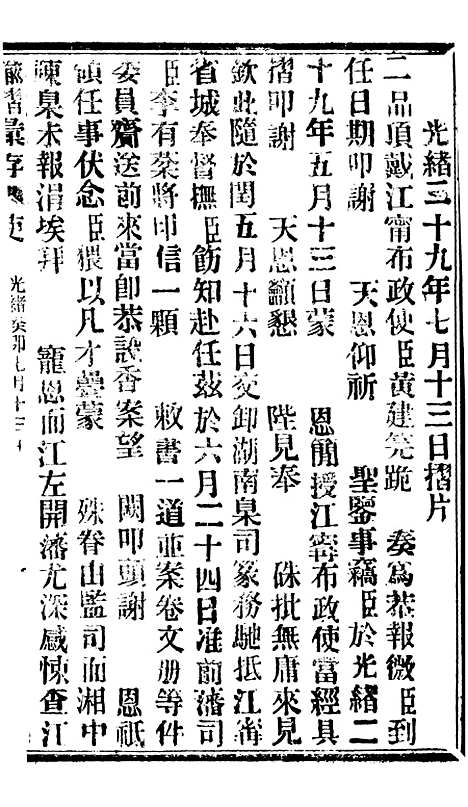 光緒二十九年七月十三日摺片
二品頂戴江甯布政使臣黃建筦跪　奏爲恭報微臣到
任日期叩謝　天恩仰祈　聖鑒事竊臣於光緒二
十九年五月十三日蒙　恩簡授江甯布政使當經具
摺叩謝　天恩籲懇　陛見奉　硃批無庸來見
欽此隨於閏五月十六日交卸湖南臬司篆務馳抵江甯
省城奉督撫臣飭知赴任茲於六月二十四日准前藩司
臣李有棻將印信一顆　敕書一道並案卷文册等件
委員齎送前來當卽恭設香案望　闕叩頭謝　恩祇
領任事伏念臣猥以凡才疊蒙　殊眷由監司而湘中
陳臬未報涓埃拜　寵恩而江左開藩尤深感悚查江
諭摺彙存　光緒癸卯七月十三日